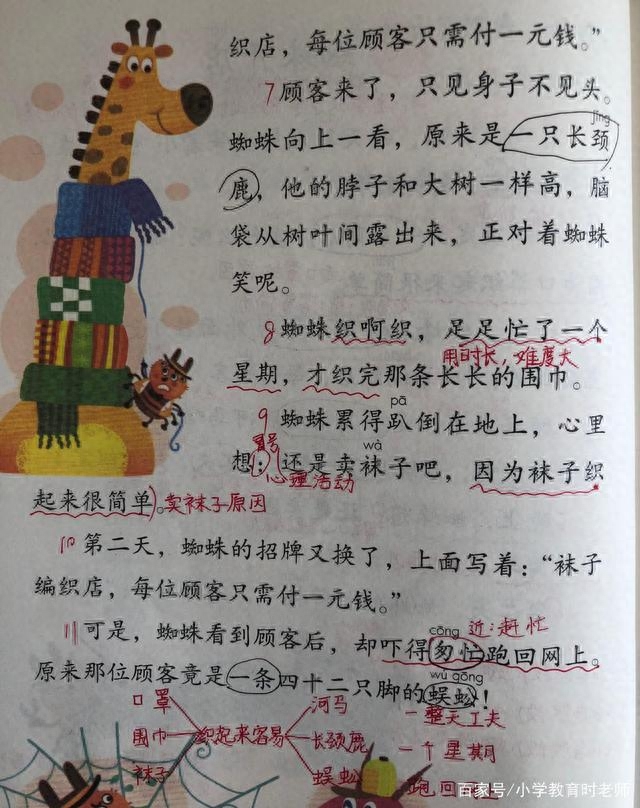 织店，每位顾客只需付一元钱。”
7 顾客来了，只见身子不见头。
jǐng
蜘蛛向上一看，原来是一只长颈
鹿，他的脖子和大树一样高，脑
袋从树叶间露出来，正对着蜘蛛
笑呢。
8 蜘蛛织啊织，足足忙了一个
用时长，难度大
星期，才织完那条长长的围巾。
pā
9 蜘蛛累得趴倒在地上，心里
冒号 wà
想：还是卖袜子吧，因为袜子织
心理活动
起来很简单。卖袜子原因
10 第二天，蜘蛛的招牌又换了，上面写着：“袜子
编织店，每位顾客只需付一元钱。”
cōng 近：赶忙
11 可是，蜘蛛看到顾客后，却吓得匆忙跑回网上。
wú gōng
原来那位顾客竟是一条四十二只脚的蜈蚣！
口罩 河马 一整天工夫
围巾 织起来容易 长颈鹿 一个星期
袜子 蜈蚣 跑回
百家号/小学教育时老师